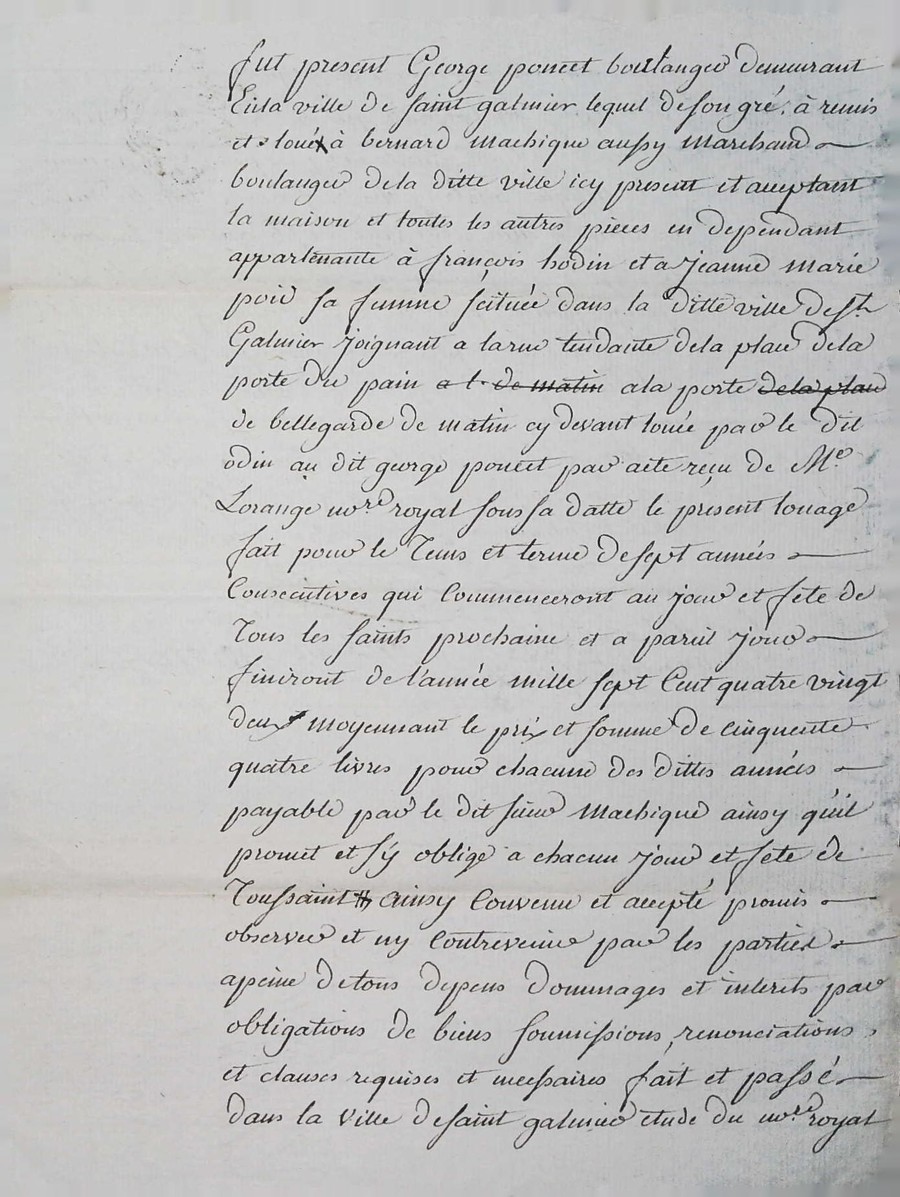 fut present George poncet boulanger demeurant
En la ville de saint galmier lequel de son gré, à remis
et loué à bernard machique aussy marchand
boulanger dela ditte ville icy present et acceptant
la maison et toutes les autres pieces en dependant
appartenante à françois hodin et a jeanne marie
poid sa femme scituée dans la ditte ville de st
Galmier joignant a la rue tendante dela place dela
porte du pain a l. de matin ala porte dela place
de bellegarde de matin cy devant louée par le dit
odin au dit george poncet par acte reçu de Me
Lorange nore royal sous sa datte le present louage
fait pour le Tems et terme de sept années
Consecutives qui Commenceront au jour et fete de
Tous les saints prochaine et a pareil jour
finiront de l'année mille sept Cent quatre vingt
deux moyennant le prix et somme de cinquente
quatre livres pour chacune des dittes années
payable par le dit sieur Machique ainsy qu'il
promet et s'y oblige a chacun jour et fete de
Toussaint ainsy Convenu et accepté promis
observer et ny Contrevenir par les parties
apeine de tous depens dommages et interets par
obligations de biens soumissions, renonciations,
et clauses requises et necessaires fait et passé
dans la ville de saint galmier etude du nore royal